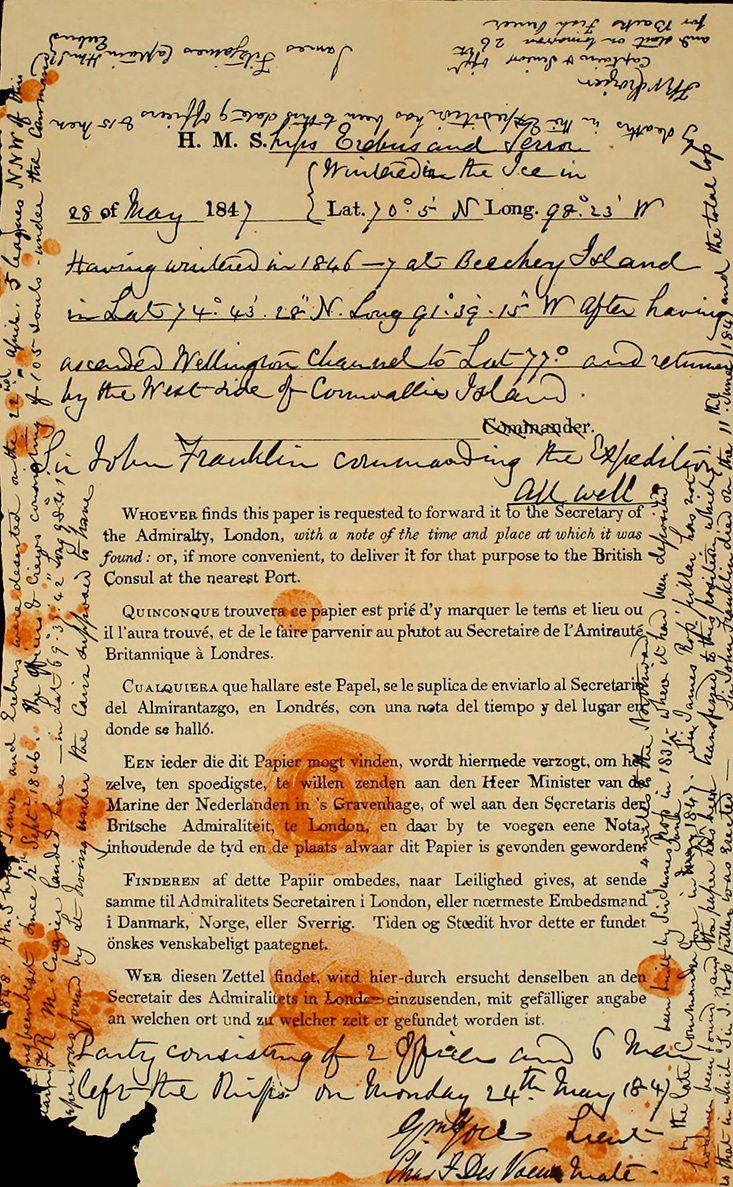 H. M. S. hips Erebus and Terror
Wintered in the Ice in
28 of May 1847 Lat. 70° 5' N Long. 98° 23' W
Having wintered in 1846–7 at Beechey Island
in Lat 74° 43' 28" N. Long 91° 39' 15" W after having
ascended Wellington Channel to Lat 77° and returned
by the West side of Cornwallis Island.
Commander.
Sir John Franklin commanding the Expedition
All well
WHOEVER finds this paper is requested to forward it to the Secretary of
the Admiralty, London, with a note of the time and place at which it was
found: or, if more convenient, to deliver it for that purpose to the British
Consul at the nearest Port.
QUINCONQUE trouvera ce papier est prié d'y marquer le tems et lieu ou
il l'aura trouvé, et de le faire parvenir au plutot au Secretaire de l'Amirauté
Britannique à Londres.
CUALQUIERA que hallare este Papel, se le suplica de enviarlo al Secretario
del Almirantazgo, en Londrés, con una nota del tiempo y del lugar en
donde se halló.
EEN ieder die dit Papier mogt vinden, wordt hiermede verzogt, om het
zelve, ten spoedigste, te willen zenden aan den Heer Minister van de
Marine der Nederlanden in 's Gravenhage, of wel aan den Secretaris den
Britsche Admiraliteit, te London, en daar by te voegen eene Nota,
inhoudende de tyd en de plaats alwaar dit Papier is gevonden geworden
FINDEREN af dette Papiir ombedes, naar Leilighed gives, at sende
samme til Admiralitets Secretairen i London, eller nœrmeste Embedsmand
i Danmark, Norge, eller Sverrig. Tiden og Stœdit hvor dette er fundet
önskes venskabeligt paategnet.
WER diesen Zettel findet, wird hier-durch ersucht denselben an den
Secretair des Admiralitets in London einzusenden, mit gefälliger angabe
an welchen ort und zu welcher zeit er gefundet worden ist.
Party consisting of 2 Officers and 6 Men
left the Ships on Monday 24th May 1847
Gm Gore Lieut
Chas F Des Voeux Mate
1848 H M Ships Terror and Erebus were deserted on the 22nd April, 5 leagues NNW of this
been beset since 12th Sept. 1846. The Officers & Crews consisting of 105 souls under the command
F. R. M. Crozier landed here – in Lat 69° 37' 42" Long 98° 41'
paper was found by Lt Irving under the Cairn supposed to have
been built by Sir James Ross in 1831 – where it had been deposited
4 miles to the Northward
by the late Commander Gore in June 1847. Sir James Ross' pillar has not
however been found and the paper has been transferred to this position which
is that in which Sir J. Ross pillar was erected – Sir John Franklin died on the 11th June 1847 and the total loss
by deaths in the Expedition has been to this date 9 officers & 15 men
James Fitzjames Captain H M S Erebus
F R M Crozier
Captain & Senior Offr
and start on tomorrow 26th
for Backs Fish River